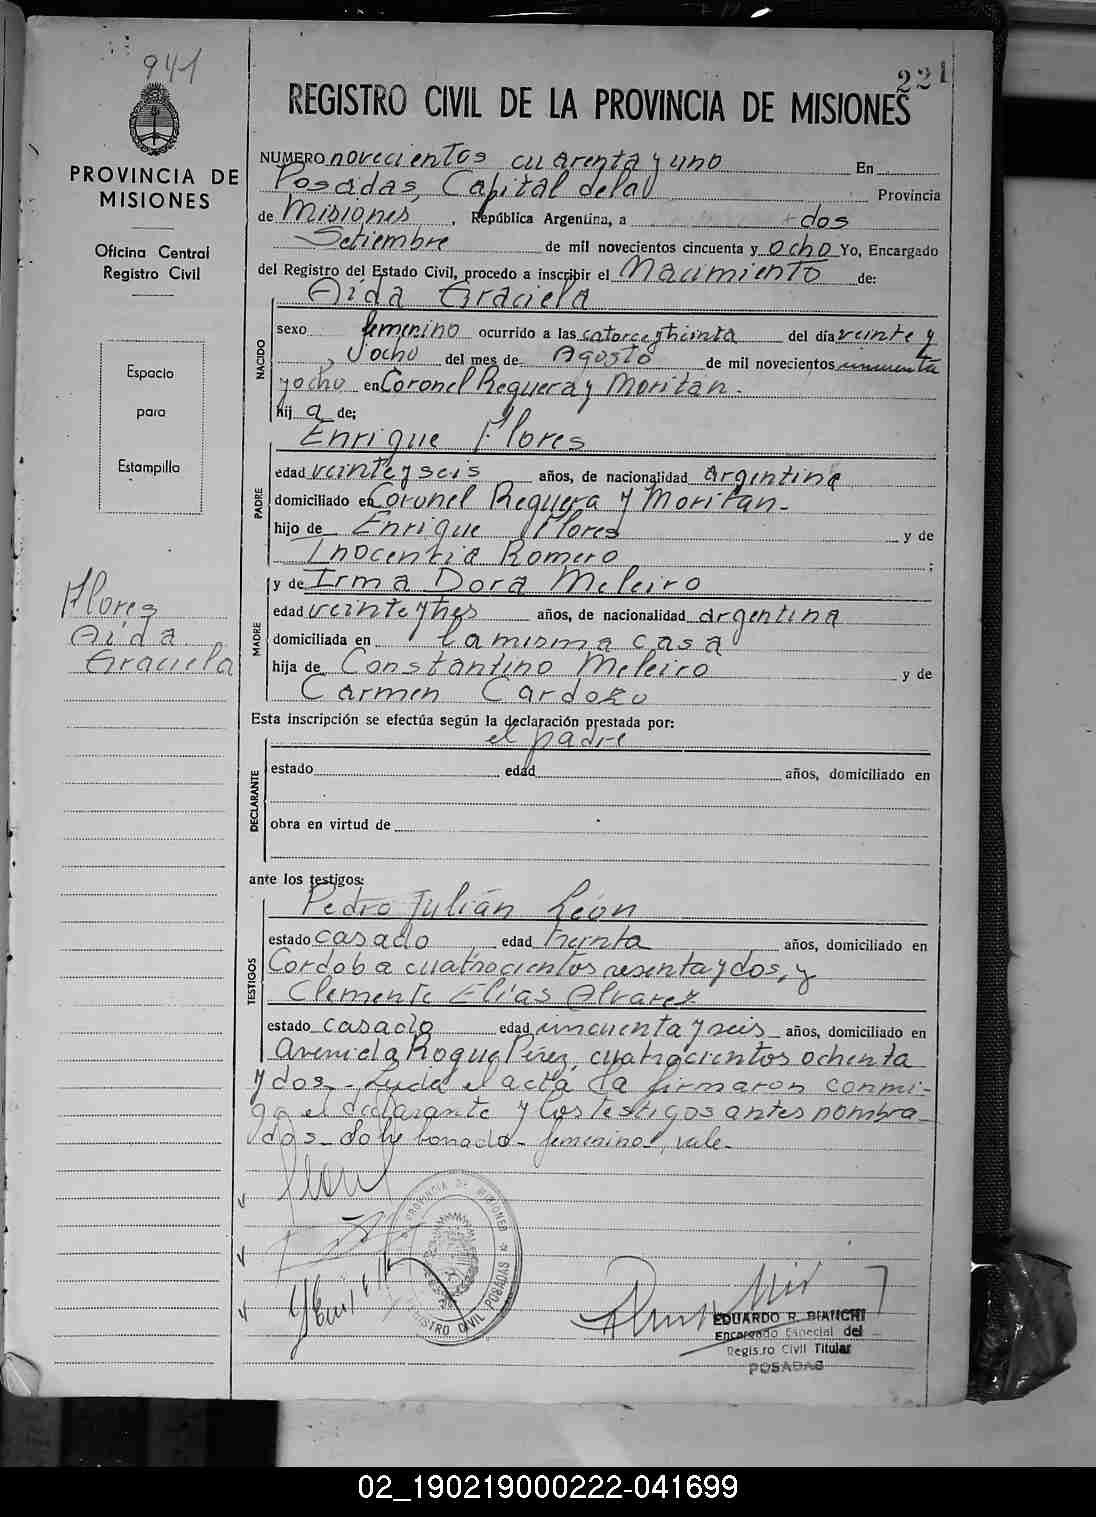 941
221
REGISTRO CIVIL DE LA PROVINCIA DE MISIONES
PROVINCIA DE
MISIONES
Oficina Central
Registro Civil
Espacio
para
Estampilla
Flores
Aída
Graciela
NUMERO novecientos cuarenta y uno En
Posadas, Capital de la Provincia
de Misiones, República Argentina, a dos
Setiembre de mil novecientos cincuenta y ocho Yo, Encargado
del Registro del Estado Civil, procedo a inscribir el Nacimiento de:
NACIDO
Aída Graciela
sexo femenino ocurrido a las catorce y treinta del día veinte y
ocho del mes de Agosto de mil novecientos cincuenta
y ocho en Coronel Reguera y Moritan.
hij a de:
PADRE
Enrique Flores
edad veinte y seis años, de nacionalidad argentina
domiciliado en Coronel Reguera y Moritan-
hijo de Enrique Flores y de
Inocencia Romero ;
y de Irma Dora Meleiro
MADRE
edad veinte y tres años, de nacionalidad argentina
domiciliada en la misma casa
hija de Constantino Meleiro y de
Carmen Cardozo
Esta inscripción se efectúa según la declaración prestada por:
el padre
DECLARANTE
estado edad años, domiciliado en
obra en virtud de
ante los testigos:
TESTIGOS
Pedro Julián León
estado casado edad treinta años, domiciliado en
Cordoba cuatrocientos sesenta y dos, y
Clemente Elías Alvarez
estado casado edad cincuenta y seis años, domiciliado en
Avenida Roque Pérez, cuatrocientos ochenta
y dos- Leída el acta la firmaron conmi-
go el declarante y los testigos antes nombra-
dos- Sobre borrado- femenino, vale-
PROVINCIA DE MISIONES
REGISTRO CIVIL POSADAS
EDUARDO R. BIANCHI
Encargado Especial del
Registro Civil Titular
POSADAS
02_190219000222-041699